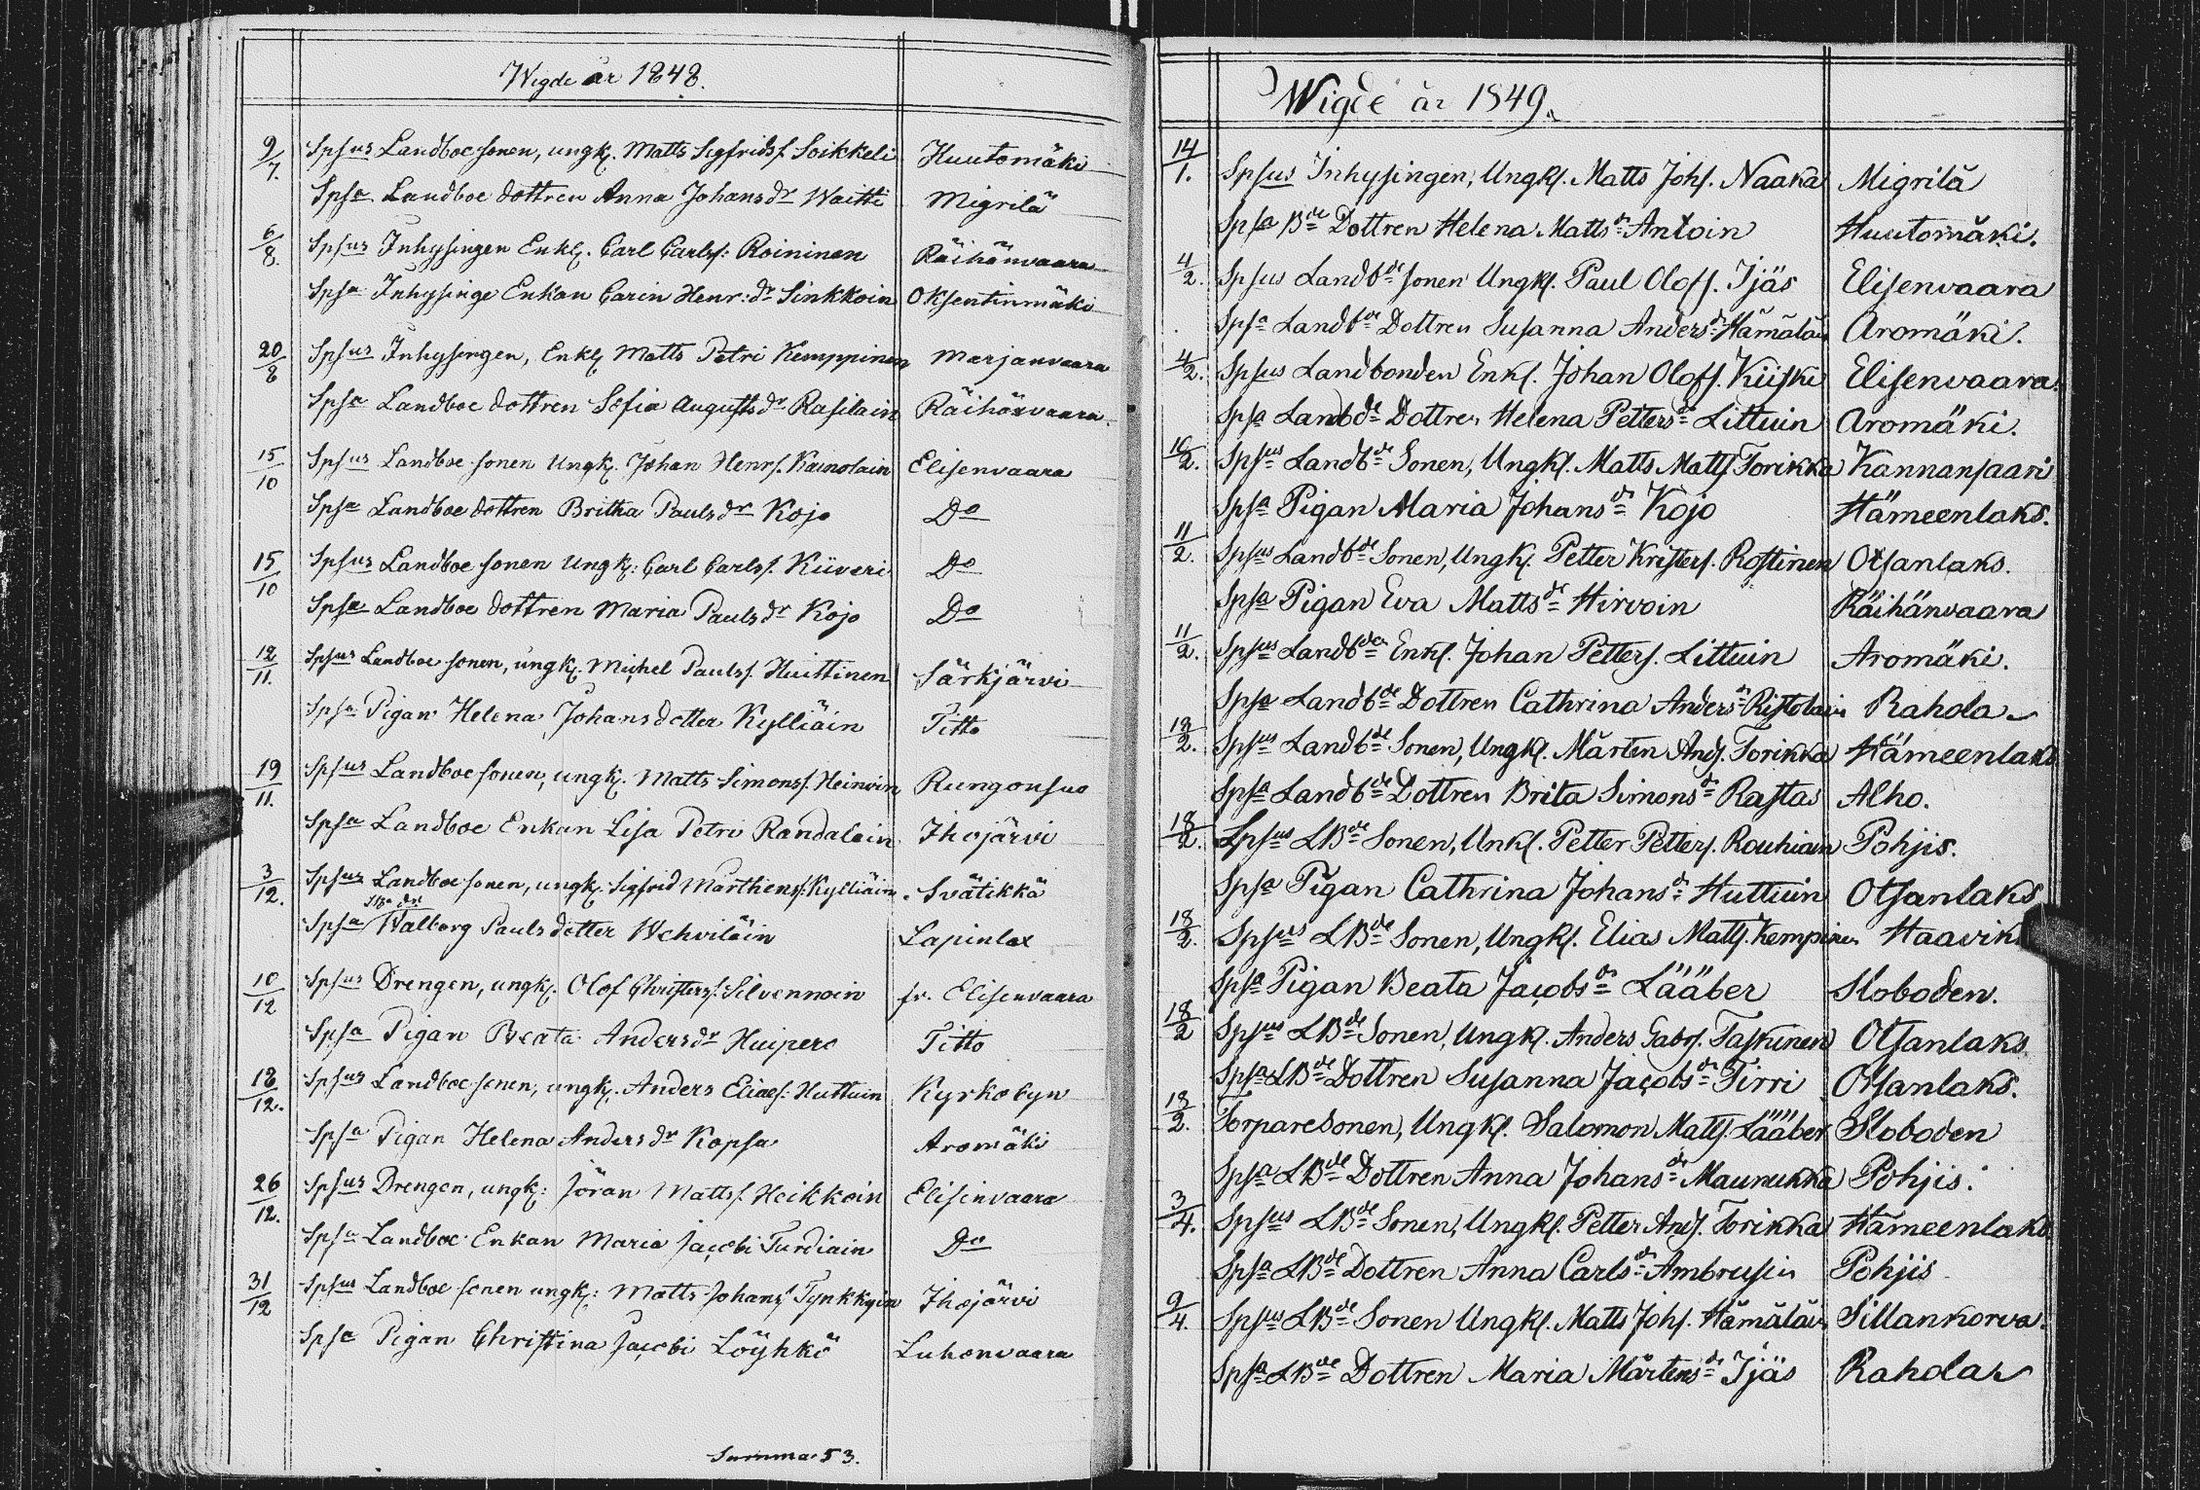 Wigde år 1848.
9/7. Spsus Landboe sonen, ungk. Matts Sigfridss. Soikkeli Huutomäki
Spsa Landboe dottren Anna Johans dr Waitti Migrilä
6/8. Spsus Inhysingen Enkl. Carl Carlss: Roininen Räihänvaara
Spsa Inhysinge Enkan Carin Henr: dr Sinkkoin Oksentinmäki
20/8 Spsus Inhysingen, Enkl Matts Petri Kemppinen Marjanvaara
Spsa Landboe dottren Sofia Augusts dr Rasilain Räihänvaara
15/10 Spsus Landboe sonen Ungk. Johan Henrs. Kainolain Elisenvaara
Spsa Landboe dottren Britha Pauls dr Kojo Do
15/10 Spsus Landboe sonen Ungk: Carl Carlss. Kiiveri Do
Spsa Landboe dottren Maria Pauls dr Kojo Do
12/11. Spsus Landboe sonen, ungk. Michel Paulss. Huittinen Särkjärvi
Spsa Pigan Helena Johans dotter Kylliäin Titto
19/11. Spsus Landboe sonen, ungk. Matts Simonss. Heinoin Rungonsuo
Spsa Landboe Enkan Lisa Petri Randalain Ihojärvi
3/12. Spsus Landboe sonen, ungk. Sigfrid Marthenss. Kylliäin Svätikkä
Spsa Walborg Pauls dotter Wehviläin Lapinlax
10/12 Spsus Drengen, ungk: Olof Christerss: Silvennoin fr. Elisenvaara
Spsa Pigan Beata Anders dr Huipero Titto
18/12. Spsus Landboe sonen, ungk. Anders Eliaes: Huttuin Kyrkobyn
Spsa Pigan Helena Anders dr Kopsa Aromäki
26/12. Spsus Drengen, ungk: Jöran Mattss. Heikkoin Elisinvaara
Spsa Landboe Enkan Maria Jacobi Turdiain Do
31/12 Spsus Landboe sonen ungk: Matts Johanss Tynkkyin Ihojärvi
Spsa Pigan Christina Jacobi Löyhkö Luhonvaara
Summa 53.
Wigde år 1849.
14/1. Spsus Inhysingen, Ungkl. Matts Johs. Naaka Migrilä
Spsa Bde Dottren Helena Matts dr Antoin Huutomäki.
4/2. Spsus Landbde sonen Ungkl. Paul Olofs. Ijäs Elisenvaara
Spsa Landbde Dottren Susanna Anders dr Hämäläin Aromäki.
4/2. Spsus Landbonden Enkl. Johan Olofs. Kiiski Elisenvaara.
Spsa Landbde Dottren Helena Petters dr Littuin Aromäki.
10/2. Spsus Landbde Sonen, Ungkl. Matts Matts. Torikka Kannansaari
Spsa Pigan Maria Johans dr Kojo Hämeenlaks.
11/2. Spsus Landbde Sonen, Ungkl. Petter Kristers. Rostinen Otsanlaks.
Spsa Pigan Eva Matts dr Hirvoin Räihänvaara
11/2. Spsus Landbden Enkl. Johan Petters. Littuin Aromäki.
Spsa Landbde Dottren Cathrina Anders dr Ristolain Rahola
18/2. Spsus Landbde Sonen, Ungkl. Mårten Ands. Torikka Hämeenlaks
Spsa Landbde Dottren Brita Simons dr Rastas Alho.
18/2. Spsus LBde Sonen, Unkl. Petter Petters. Rouhiain Pohjis.
Spsa Pigan Cathrina Johans dr Huttuin Otsanlaks
18/2. Spsus LBde Sonen, Ungkl. Elias Matts. Kempinen Haavik
Spsa Pigan Beata Jacobs dr Lääber Sloboden.
18/2 Spsus LBde Sonen, Ungkl. Anders Gabrs. Taskinen Otsanlaks
Spsa LBde Dottren Susanna Jacobs dr Tirri Otsanlaks.
18/2. Torparesonen, Ungkl. Salomon Matts. Lääber Sloboden
Spsa LBde Dottren Anna Johans dr Maunukka Pohjis.
3/4. Spsus LBde Sonen, Ungkl. Petter Ands. Torikka Hämeenlaks
Spsa LBde Dottren Anna Carls dr Ambrusin Pohjis
9/4. Spsus LBde Sonen Ungkl. Matts Johs. Hämäläin Sillankorva.
Spsa LBde Dottren Maria Mårtens dr Ijäs Rahola